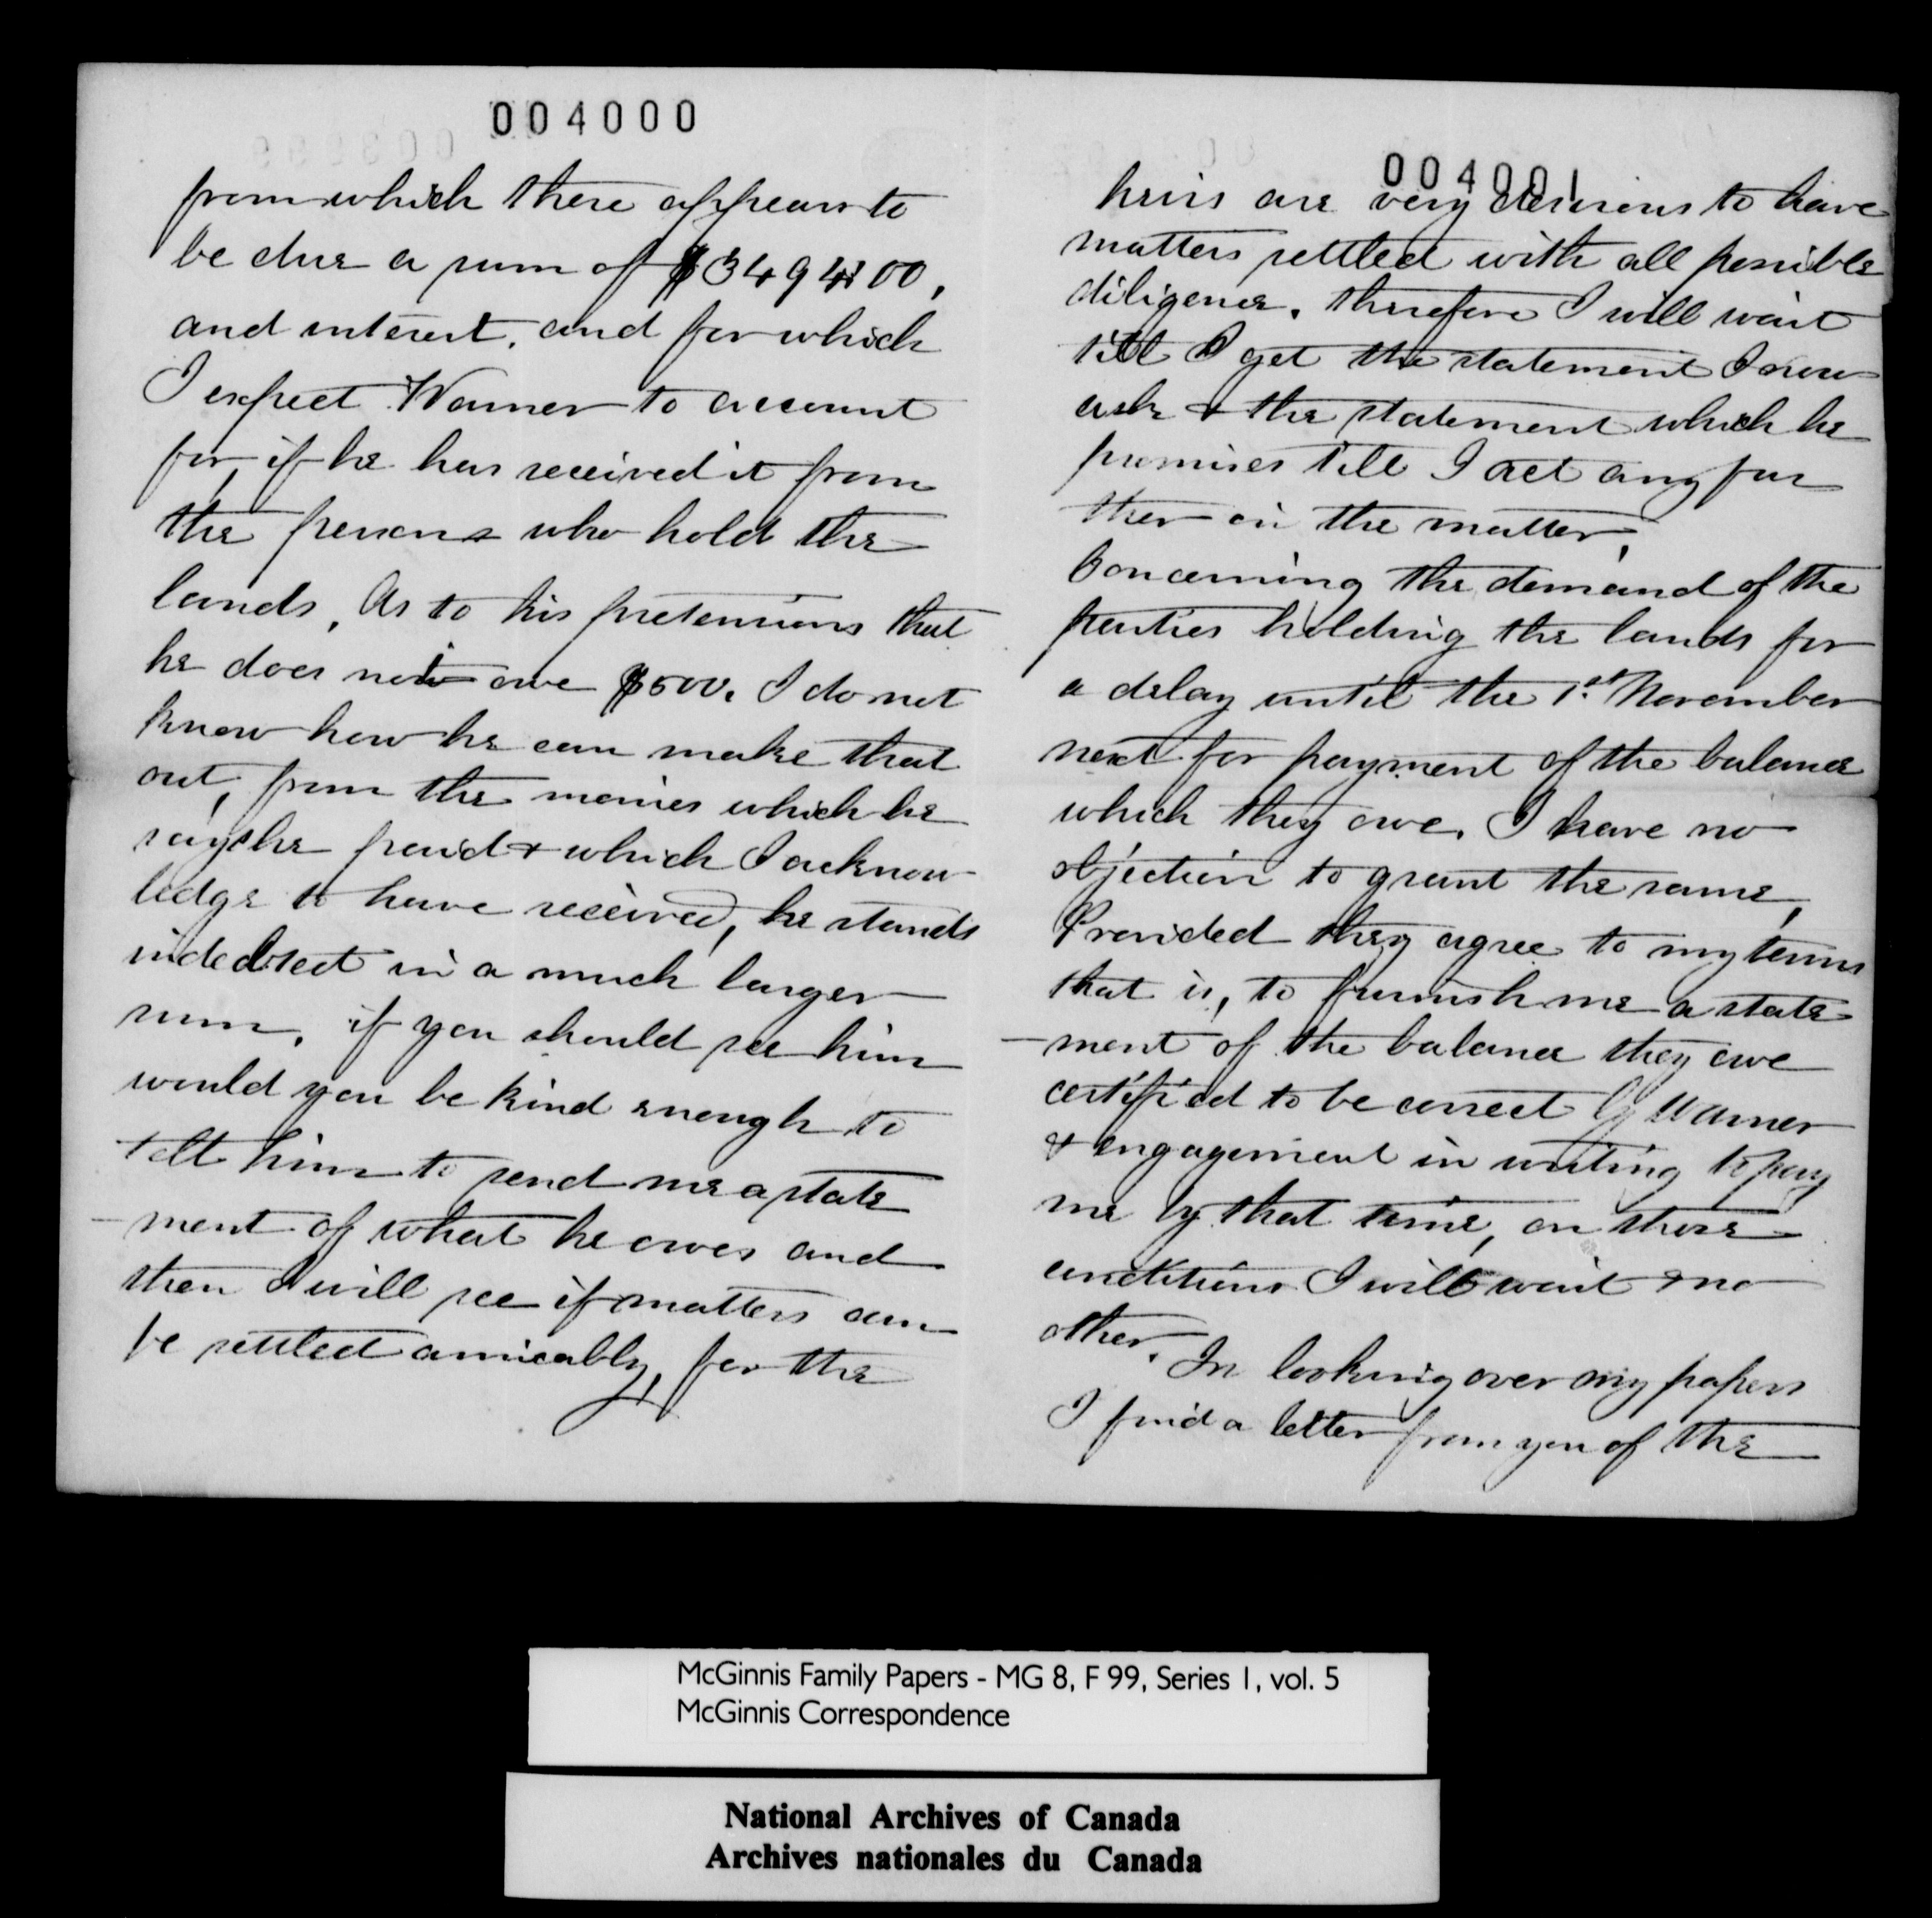 004000
from which there appears to
be due a sum of $3494.00,
and interest. and for which
I expect Warner to account
for, if he has received it from
the persons who hold the
lands, As to his pretensions that
he does not owe $500. I do not
know how he can make that
out, from the monies which he
says he paid & which I acknow
ledge to have received, he stands
indebted in a much larger
sum. if you should see him
would you be kind enough to
tell him to send me a state
-ment of what he owes and
then I will see if matters can
be settled amicably, for the
004001
heirs are very desirous to have
matters settled with all possible
diligence. therefore I will wait
till I get the statement I now
ask & the statement which he
promises till I act any fur
ther in the matter,
Concerning the demand of the
parties holding the lands for
a delay until the 1st November
next for payment of the balance
which they owe. I have no
objection to grant the same,
Provided they agree to my terms
that is, to furnish me a state-
-ment of the balance they owe
certified to be correct by Warner
& engagement in writing to pay
me by that time, on these
conditions I will wait & no
other.
In looking over my papers
I find a letter from you of the
McGinnis Family Papers - MG 8, F 99, Series 1, vol. 5
McGinnis Correspondence
National Archives of Canada
Archives nationales du Canada